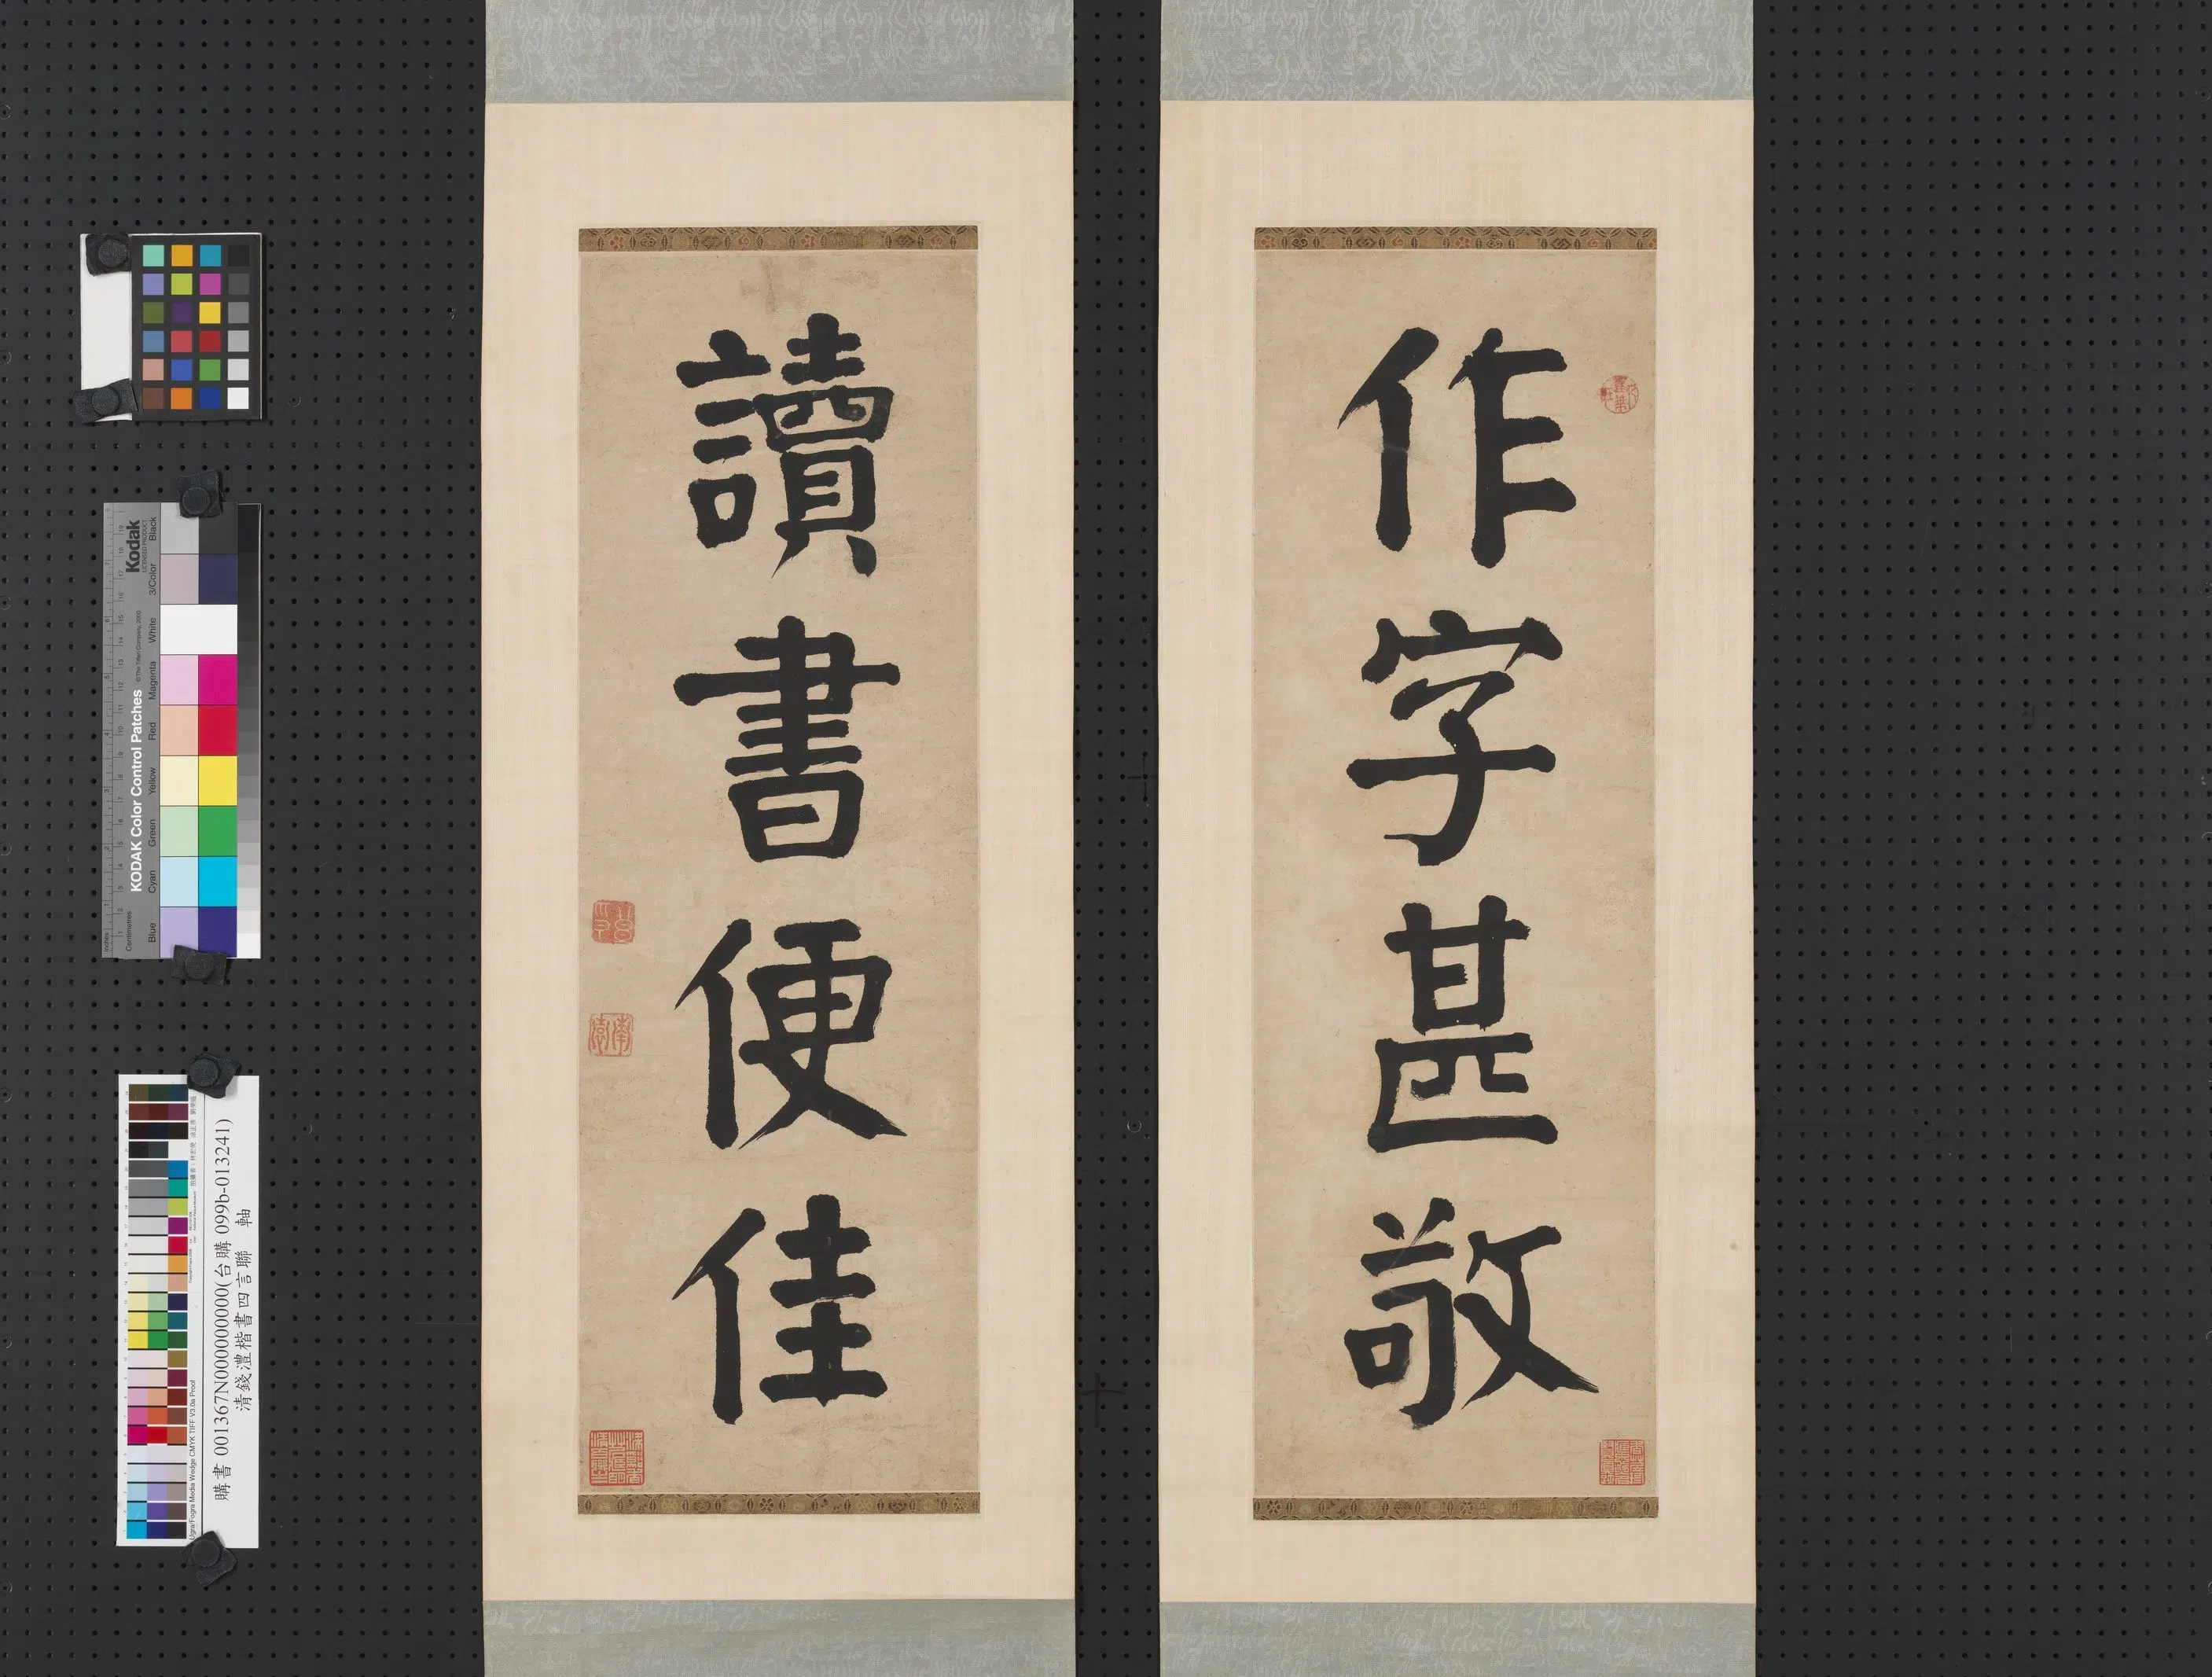 作字甚敬
讀書便佳
KODAK Color Control Patches
Kodak
LICENSED PRODUCT
© The Tiffen Company, 2000
Inches
Centimetres
Blue
Cyan
Green
Yellow
Red
Magenta
White
3/Color
Black
購書 001367N000000000(台購 099b-013241)
清錢灃楷書四言聯 軸
Ugra/Fogra Media Wedge CMYK TIFF V3.0a Proof